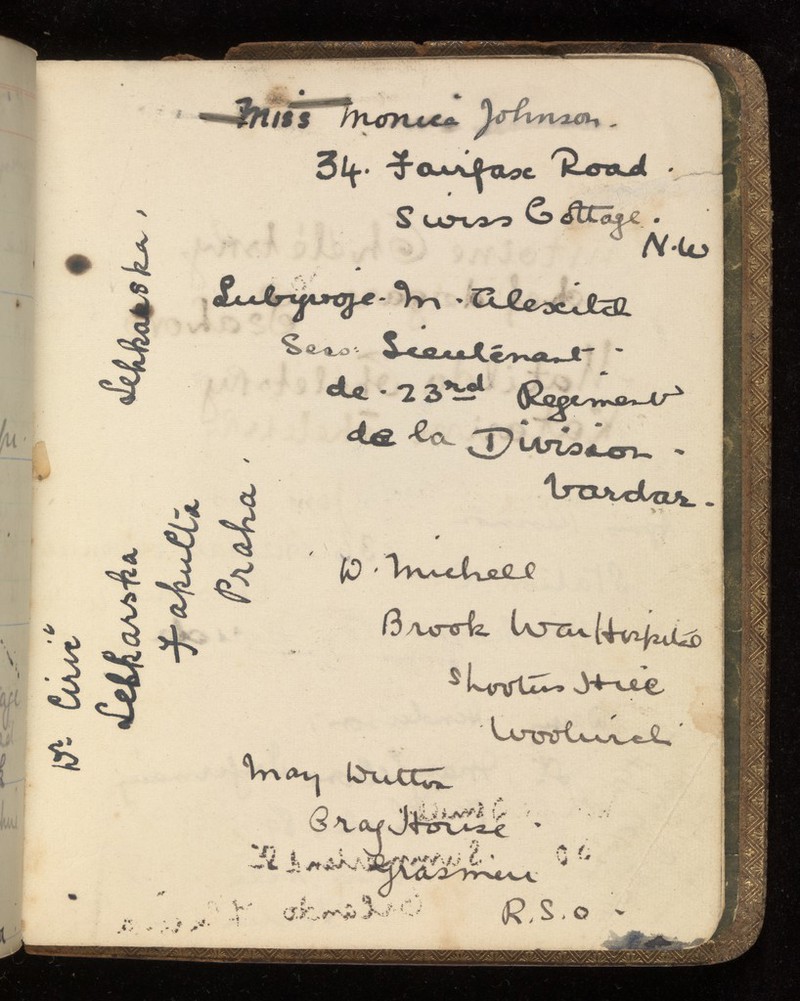 Miss Monica Johnson.
34. Fairfax Road.
Swiss Cottage.
N.W
M.
Lieutenant
de. 23rd Regiment
de la Division.
Vardar.
D. Michell
Brook War Hospital
Shooters Hill
Woolwich
May Dutton
Crag House.
Grasmere
R.S.O.
Dr. Cirić
Lekharska
Fakulta
Praha